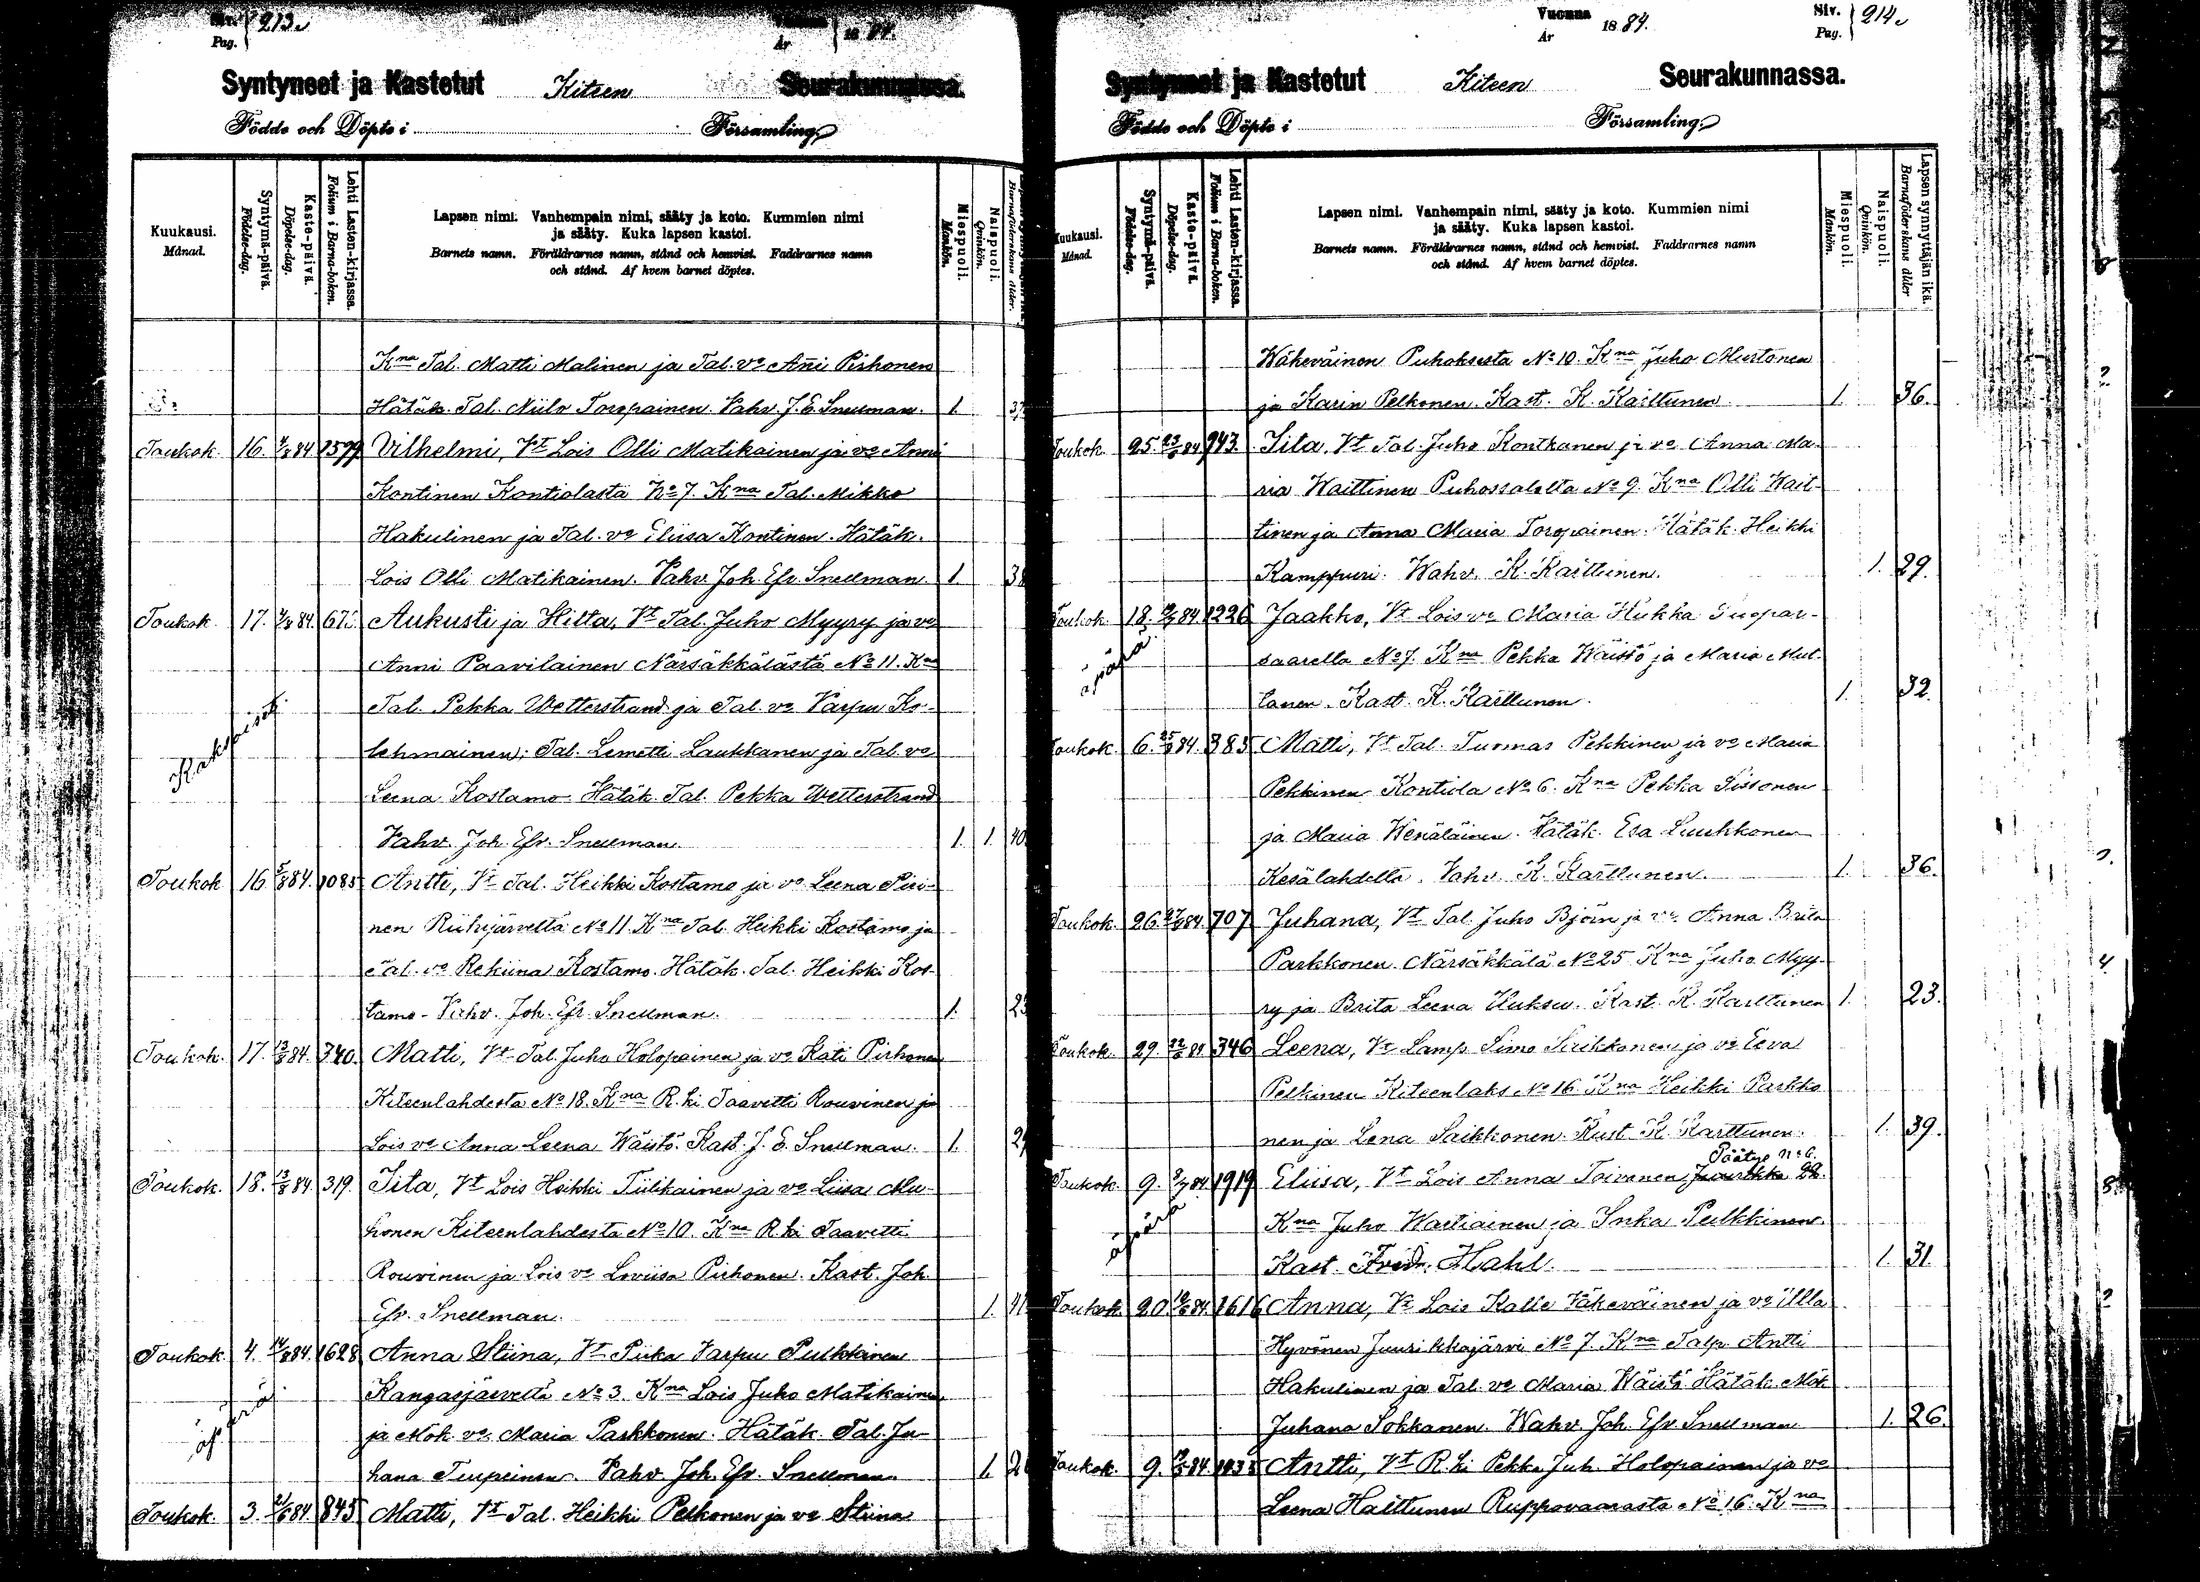 Siv. Pag. 213.
Vuonna År 1884.
Syntyneet ja Kastetut Kiteen Seurakunnassa.
Födde och Döpte i Församling
Kuukausi. Månad.
Syntymä-päivä. Födelse-dag.
Kaste-päivä. Döpelse-dag.
Lehti Lasten-kirjassa. Folium i Barna-boken.
Lapsen nimi. Vanhempain nimi, sääty ja koto. Kummien nimi
ja sääty. Kuka lapsen kastoi.
Barnets namn. Föräldrarnes namn, stånd och hemvist. Faddrarnes namn
och stånd. Af hvem barnet döptes.
Miespuoli. Mankön.
Naispuoli. Qvinkön.
Barnaföderskans ålder.
Kna Tal. Matti Malinen ja Tal. vo Anni Pirhonen
Hätäk. Tal. Niilo Toropainen. Vahv. J. E. Snellman. 1.
Toukok. 16. 84 1579 Vilhelmi, Vt Lois Olli Matikainen ja vo Anni
Kontinen Kontiolasta No 7. Kna Tal. Mikko
Hakulinen ja Tal. vo Eliisa Kontinen. Hätäk.
Lois Olli Matikainen. Vahv. Joh. Efr. Snellman. 1.
Toukok. 17. 84. Aukusti ja Hilta, Vt Tal. Juho Myyry ja vo
Anni Paavilainen Närsäkkälästä No 11. Kna
Tal. Pekka Wetterstrand ja Tal. vo Varpu Ko-
Kaksoiset
lehmainen; Tal. Lemetti Laukkanen ja Tal. vo
Leena Kostamo. Hätäk. Tal. Pekka Wetterstrand
Vahv. Joh. Efr. Snellman. 1. 1. 40
Toukok. 16. 84. 1085 Antti, Vt Tal. Heikki Kostamo ja vo Leena Pii-
nen Riihijärveltä No 11. Kna Tal. Heikki Kostamo ja
Tal. vo Rekiina Kostamo. Hätäk. Tal. Heikki Kos-
tamo. Vahv. Joh. Efr. Snellman. 1.
Toukok. 17. 84. 340. Matti, Vt Tal. Juho Holopainen ja vo Kati Pirhonen
Kiteenlahdesta No 18. Kna R.ki Taavetti Rouvinen ja
Lois vo Anna Leena Wäistö. Kast. J. E. Snellman. 1.
Toukok. 18. 84. 319. Iita, Vt Lois Heikki Tiilikainen ja vo Liisa Mu-
honen Kiteenlahdesta No 10. Kna R.ki Taavetti
Rouvinen ja Lois vo Loviisa Pirhonen. Kast. Joh.
Efr. Snellman. 1.
Toukok. 4. 84. 1628 Anna Stiina, Vt Piika Varpu Pulkkinen
äpärä
Kangasjärveltä No 3. Kna Lois Juho Matikainen
ja Mök. vo Maria Parkkonen. Hätäk. Tal. Ju-
hana Teupeinen. Vahv. Joh. Efr. Snellman. 1.
Toukok. 3. 84. 845 Matti, Vt Tal. Heikki Pelkonen ja vo Stiina
Vuonna År 1884.
Siv. Pag. 214.
Syntyneet ja Kastetut Kiteen Seurakunnassa.
Födde och Döpte i Församling
Kuukausi. Månad.
Syntymä-päivä. Födelse-dag.
Kaste-päivä. Döpelse-dag.
Lehti Lasten-kirjassa. Folium i Barna-boken.
Lapsen nimi. Vanhempain nimi, sääty ja koto. Kummien nimi
ja sääty. Kuka lapsen kastoi.
Barnets namn. Föräldrarnes namn, stånd och hemvist. Faddrarnes namn
och stånd. Af hvem barnet döptes.
Miespuoli. Mankön.
Naispuoli. Qvinkön.
Lapsen synnyttäjän ikä. Barnaföderskans ålder
Wäkeväinen Puhoksesta No 10. Kna Juho Mustonen
ja Karin Pelkonen. Kast. K. Karttunen. 1. 36.
Toukok. 25. 84 943. Iita, Vt Tal. Juho Kontkanen ja vo Anna Ma-
ria Waittinen Puhossalolta No 9. Kna Olli Wait-
tinen ja Anna Maria Toropainen. Hätäk. Heikki
Kamppuri. Wahv. K. Karttunen. 1. 29.
Toukok. 18. 84 1226 Jaakko, Vt Lois vo Maria Hukka Suopar-
äpärä
saarella No 7. Kna Pekka Wäistö ja Maria Mut-
tanen. Kast. K. Karttunen. 1. 32.
Toukok. 6. 84. 385 Matti, Vt Tal. Tuomas Pekkinen ja vo Maria
Pekkinen Kontiola No 6. Kna Pekka Sissonen
ja Maria Wenäläinen. Hätäk. Esa Luukkonen
Kesälahdella. Vahv. K. Karttunen. 1. 36.
Toukok. 26. 84 707 Juhana, Vt Tal. Juho Björn ja vo Anna Brita
Parkkonen. Närsäkkälä No 25. Kna Juho Myy-
ry ja Brita Leena Uuksu. Kast. K. Karttunen 1. 23.
Toukok. 29. 84 346 Leena, Vt Lamp. Simo Sirkkonen ja vo Eeva
Pelkinen Kiteenlaks No 16. Kna Heikki Parkko
nen ja Lena Saikkonen. Kast. K. Karttunen. 1. 39.
Päätye No 6.
Toukok. 9. 84 1919 Eliisa, Vt Lois Anna Toivanen
äpärä
Kna Juho Wartiainen ja Inka Pulkkinen.
Kast. Fredr. Hahl. 1. 31.
Toukok. 20. 84. 1616 Anna, Vt Lois Kalle Väkeväinen ja vo Ulla
Hyvönen Juurikkajärvi No 7. Kna Talp. Antti
Hakulinen ja Tal. vo Maria Wäistö. Hätäk. Mök.
Juhana Sokkanen. Wahv. Joh. Efr. Snellman 1. 26.
Toukok. 9. 84. Antti, Vt R.ki Pekka Juh. Holopainen ja vo
Leena Halttunen Ruppovaarasta No 16. Kna